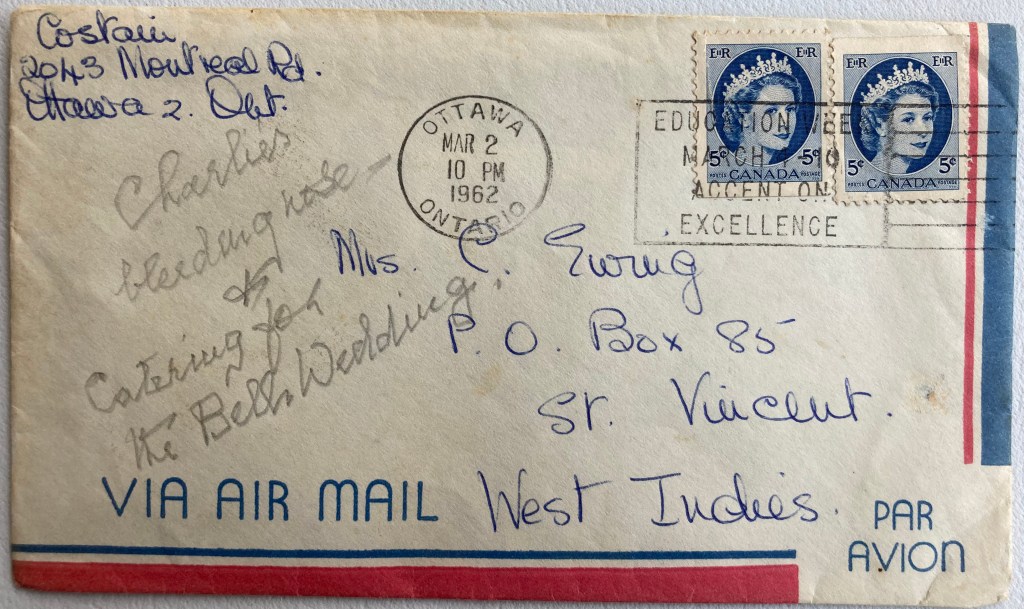 Costain
2043 Montreal Rd.
Ottawa 2. Ont.
OTTAWA
MAR 2
10 PM
1962
ONTARIO
EIIR EIIR
5¢ 5¢
POSTES CANADA POSTAGE
EIIR EIIR
5¢ 5¢
POSTES CANADA POSTAGE
EDUCATION WEEK
MARCH 4 - 10
ACCENT ON
EXCELLENCE
Charlie's
bleeding nose –
&
Catering for
the Bell Wedding.
Mrs. C. Ewing
P. O. Box 85
St. Vincent.
West Indies.
VIA AIR MAIL
PAR
AVION